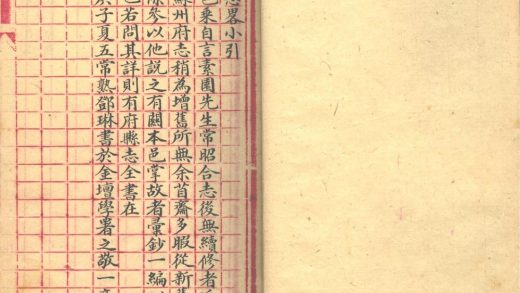 志畧小引
邑乘自言素園先生常昭合志後無續修者
蘇州府志稍為增舊所無余苜齋多暇從新舊
除參以他說之有關本邑掌故者彙鈔一編
也若問其詳則有府縣志全書在
子夏五常熟鄧琳書於金壇學署之敬一